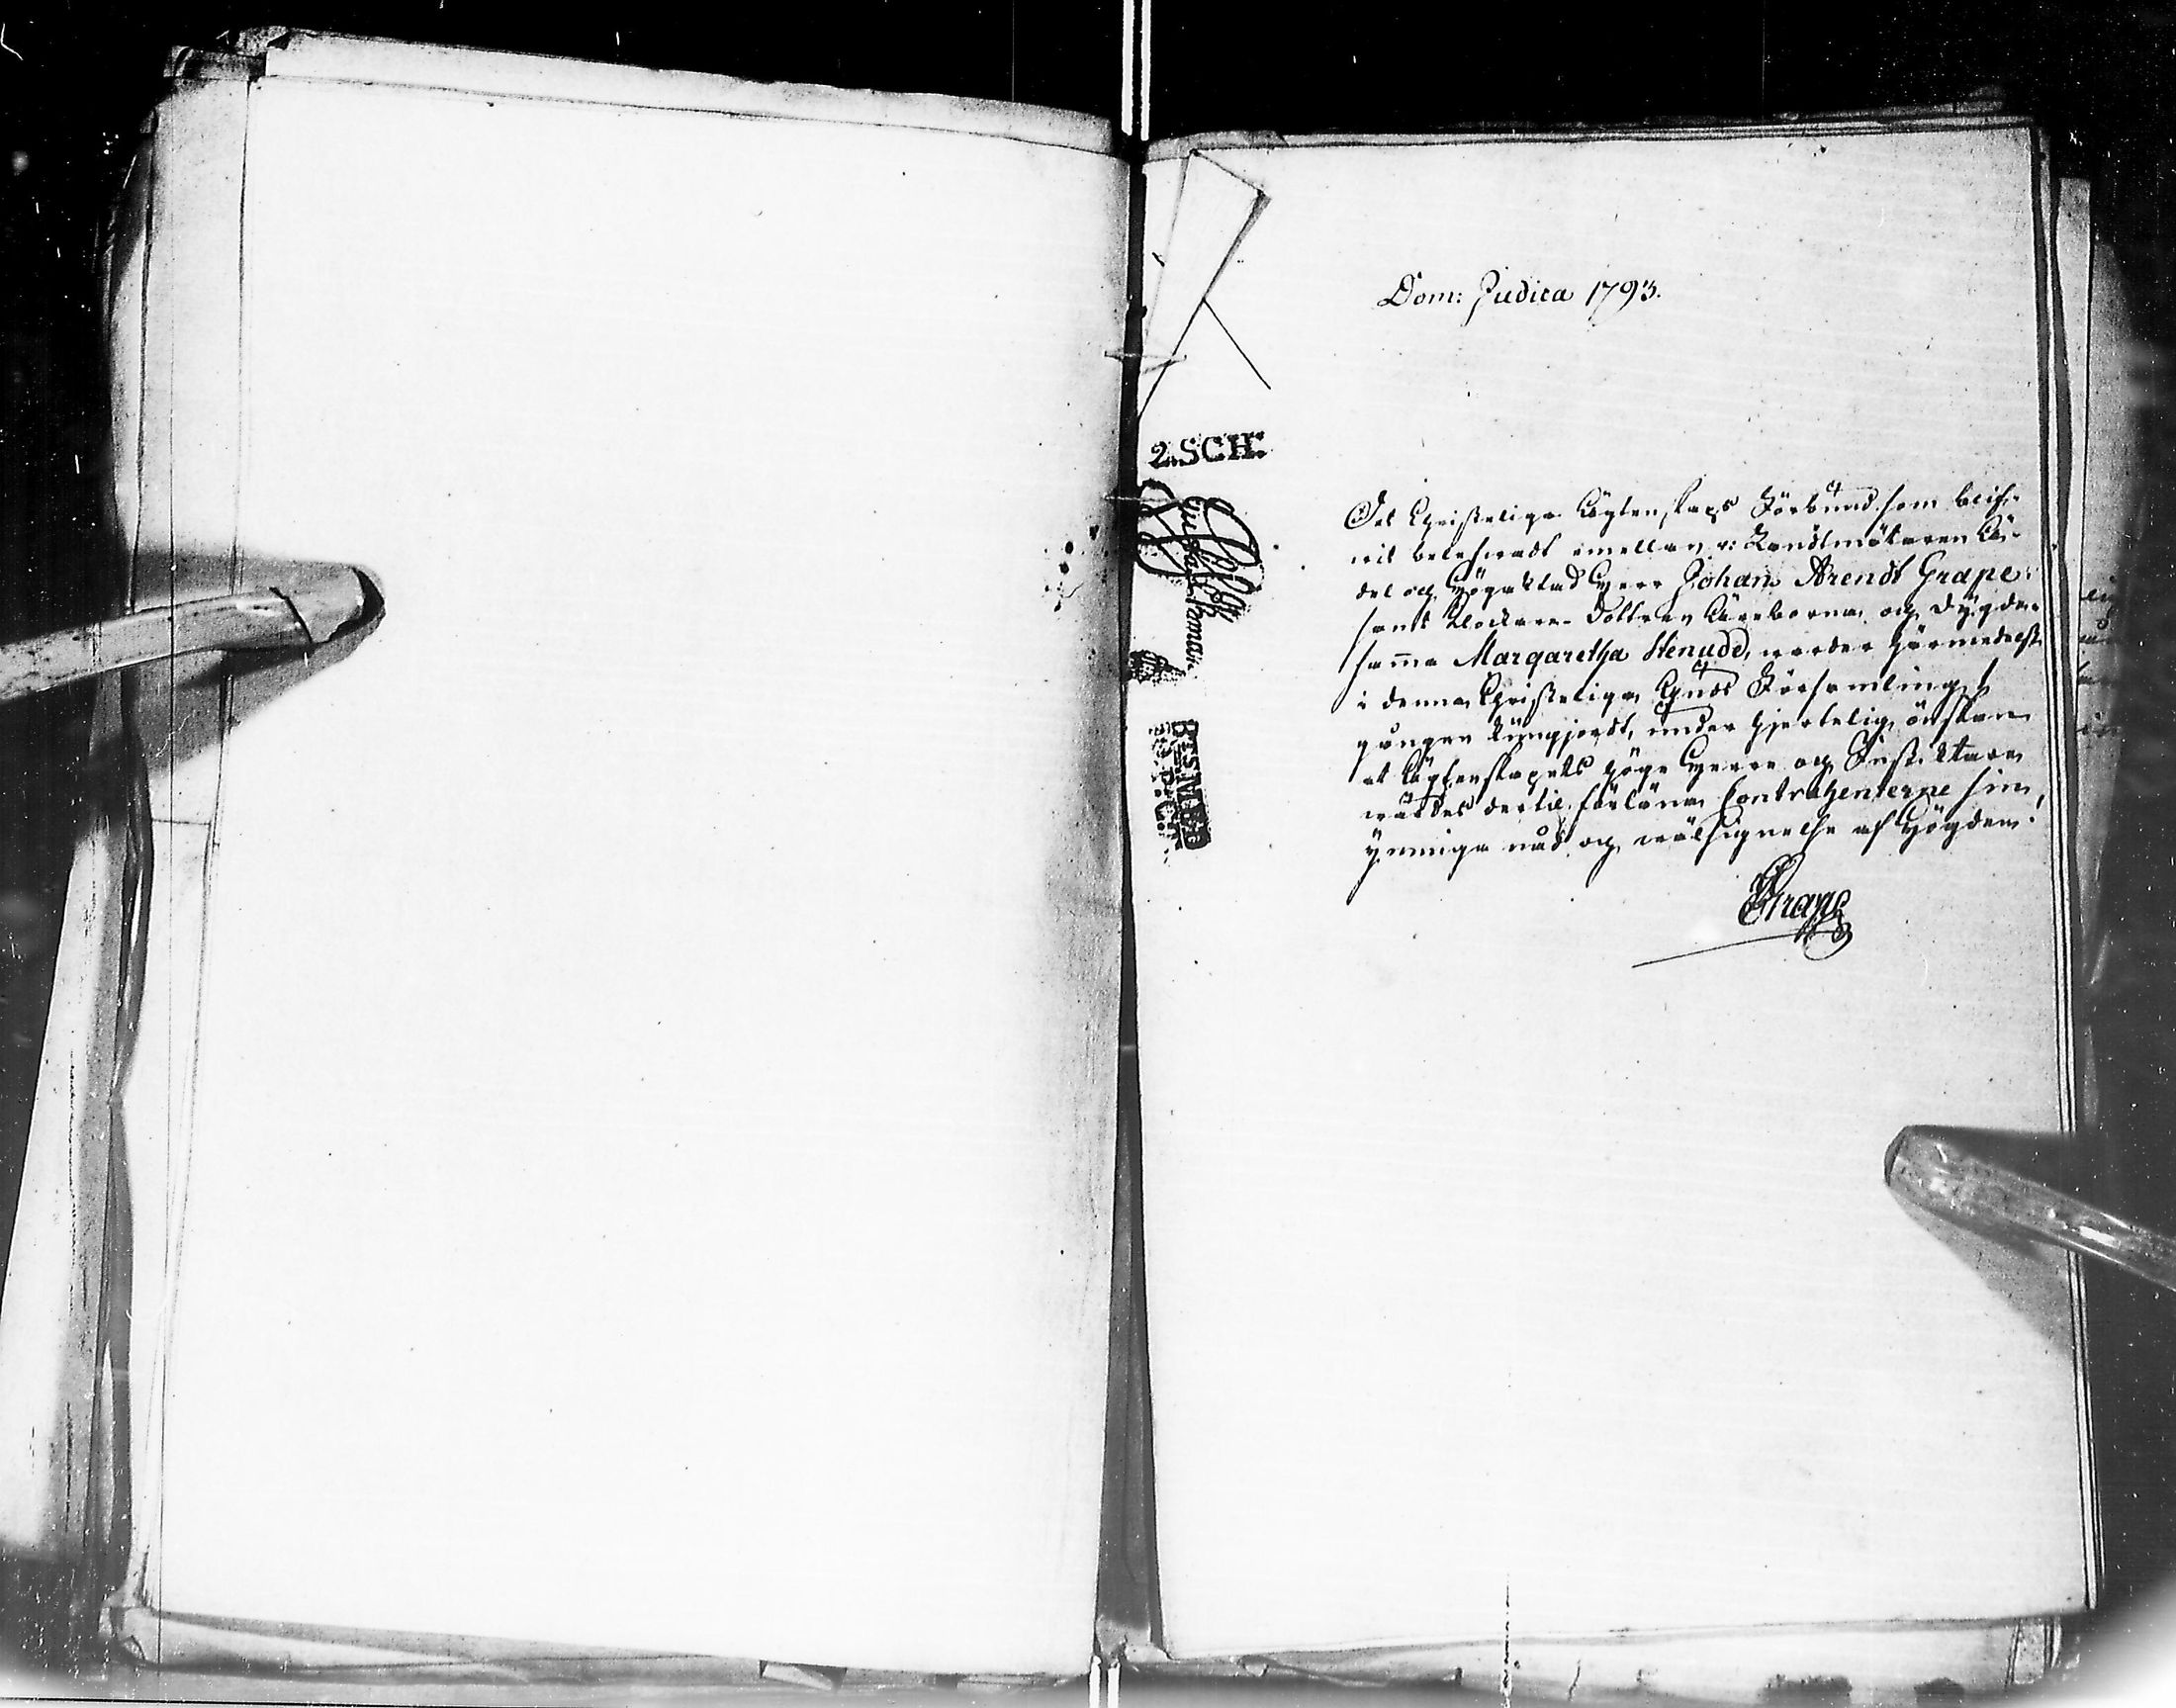 Dom: Judica 1793.
2.SCH:
Det Christeliga Ägtenskaps Förbund som blif-
wit beteknadt emellan v: Landtmätaren Ä-
del och Högaktad Herr Johan Arendt Grape
samt Klockare-Dottren Äreborna och Dygde-
sama Margaretha Stenudd, warder härmedelst
i denna Christeliga Guds Församling
gången kungjordt, under hjertelig önskan
at Ägtenskapets höga Herre och Instiktare
wärdes dertil förläna Contrahenterne sin
ynniga nåd och wälsignelse af Högden.
Grape